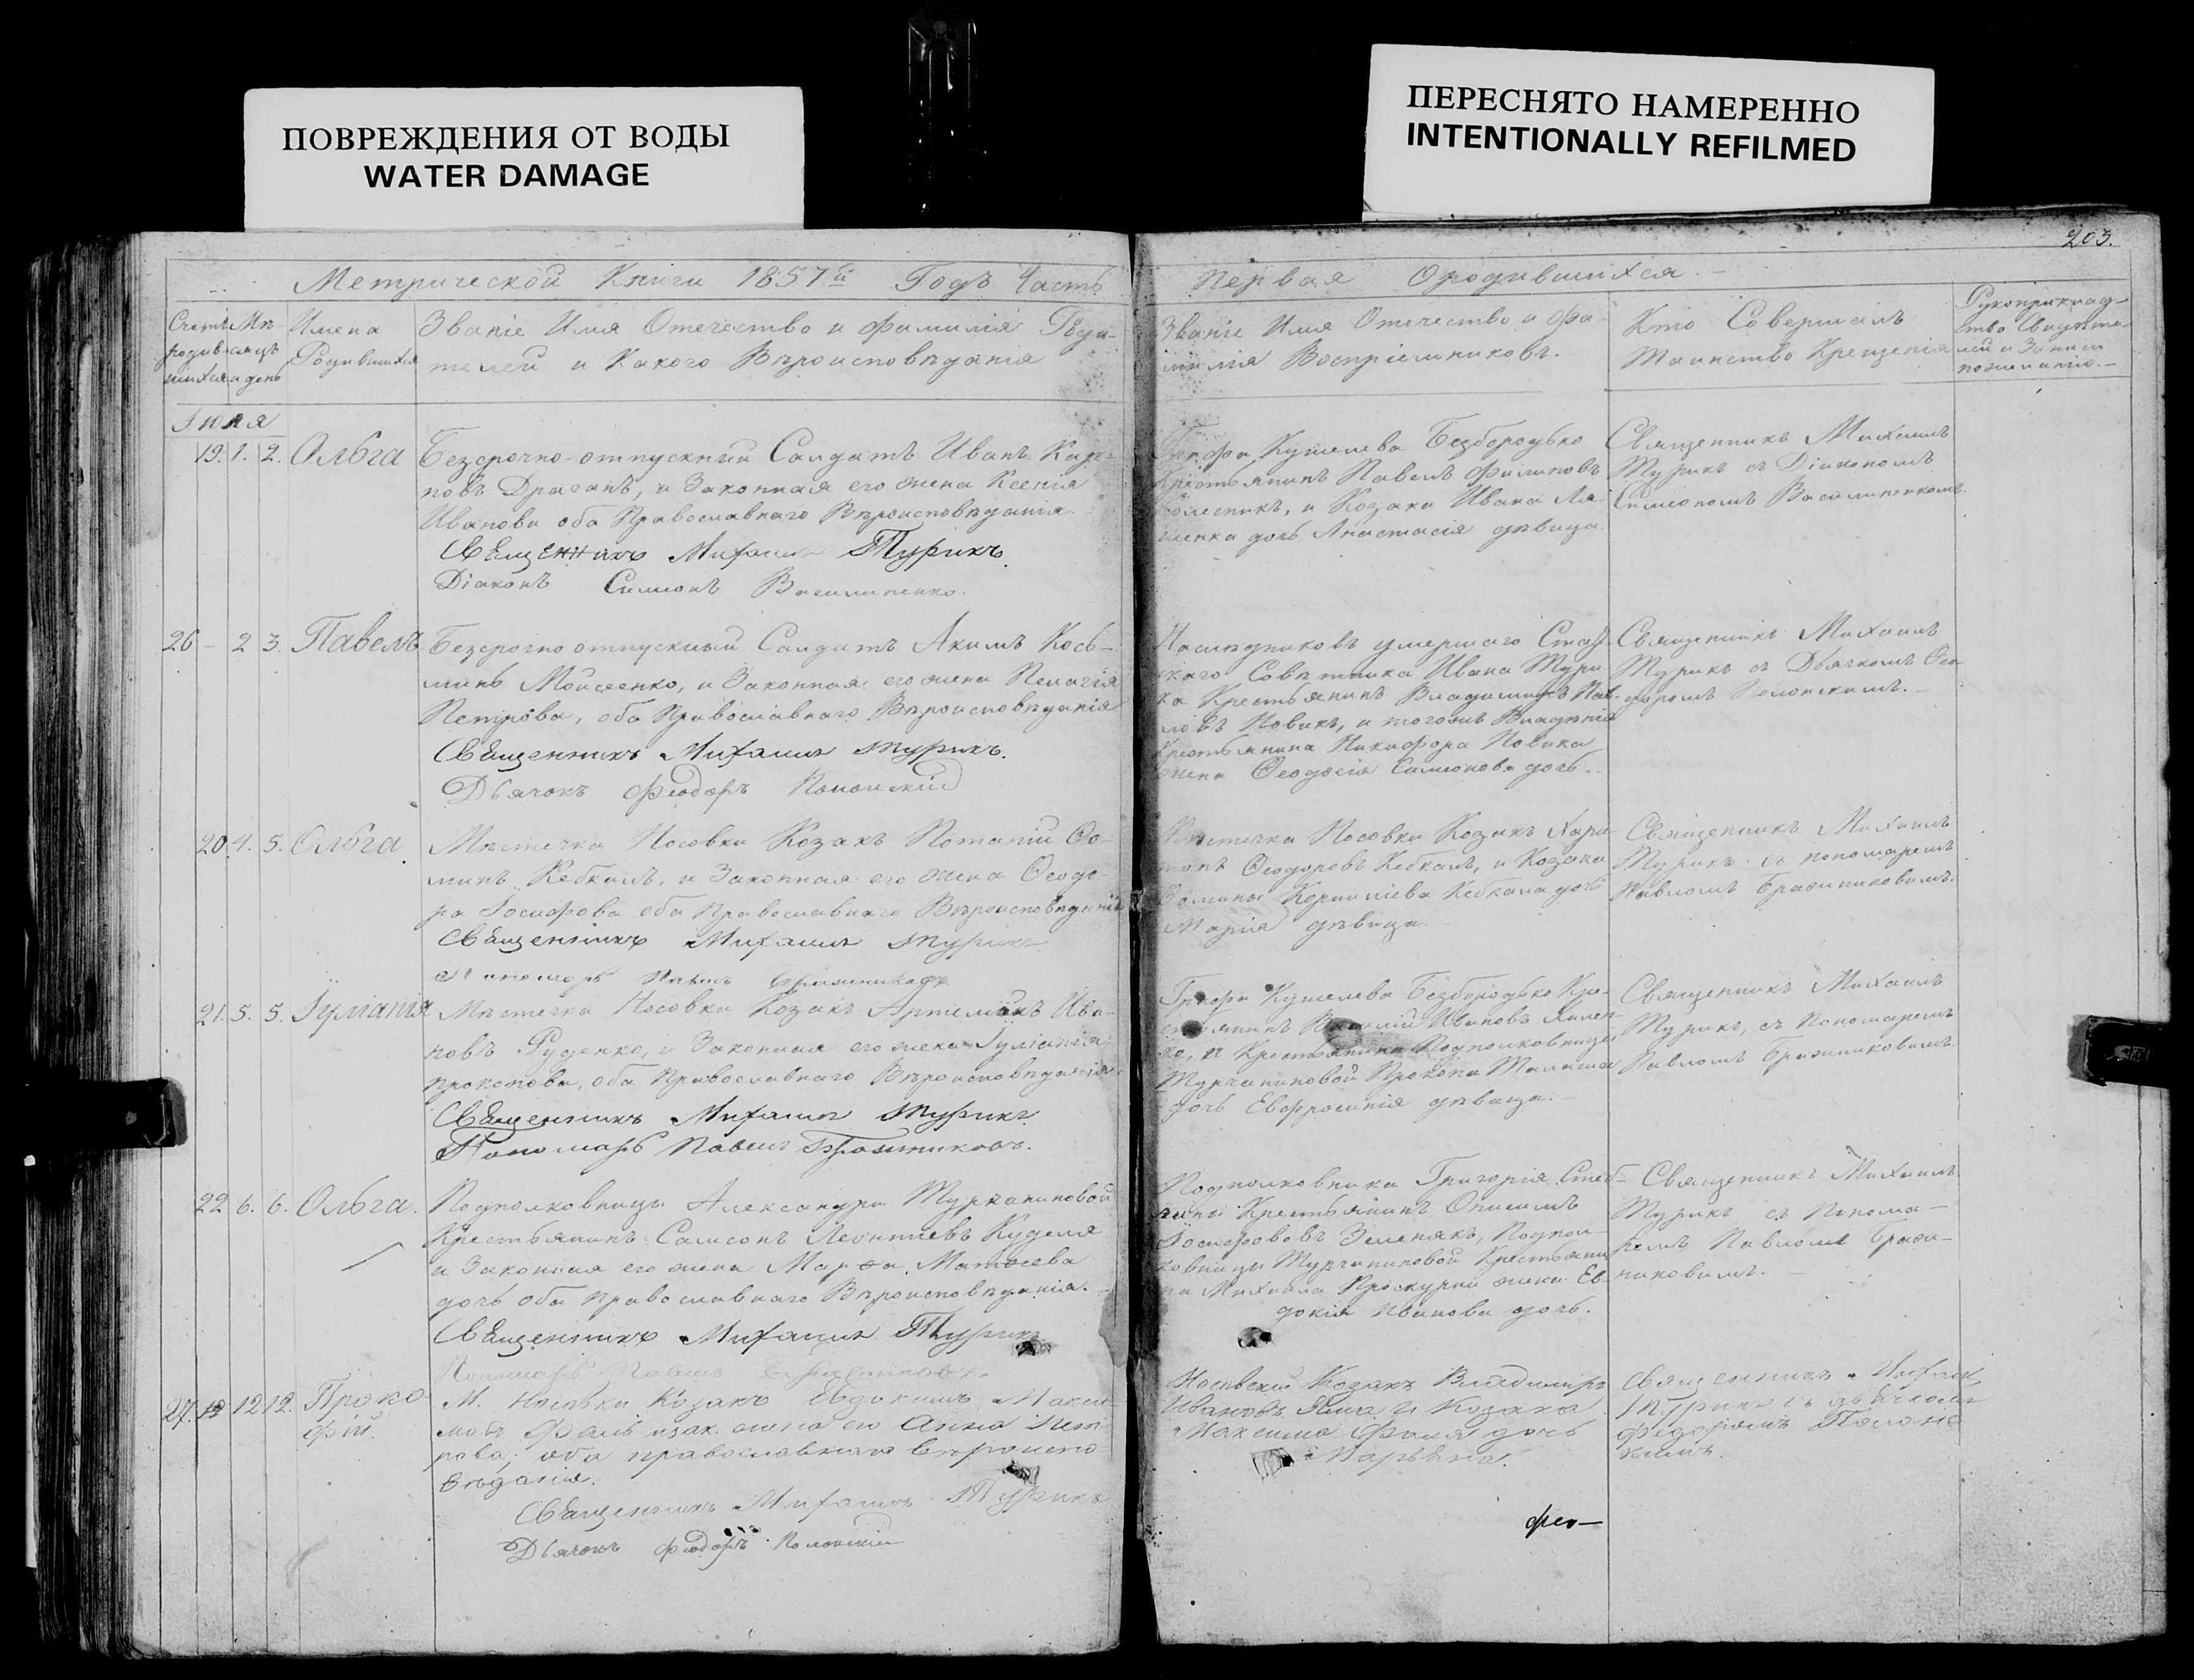 ПОВРЕЖДЕНИЯ ОТ ВОДЫ
WATER DAMAGE
ПЕРЕСНЯТО НАМЕРЕННО
INTENTIONALLY REFILMED
203.
Метрической Книги 1857й Годъ Часть
Первая Ородившихся
Счетъ родив-шихся
Мѣ-сяцъ и день
Имена
Родившихся
Званіе Имя Отечество и фамилія Роди-
телей и Какого Вѣроисповѣданія
Званіе Имя Отечество и фа-
милія Воспріемниковъ.
Кто Совершалъ
Таинство Крещенія
Рукоприклад-
ство Свидѣте-
лей
Іюля
19. 1. 2. Ольга
Безсрочно-отпускный Солдатъ Иванъ Кар-
повъ Драганъ, и Законная его жена Ксенія
Иванова оба Православнаго Вѣроисповѣданія.
Священникъ Михаилъ Турикъ.
Діаконъ Симеонъ Василипенко.
Графа Кушелева Безбородько
Крестьянинъ Павелъ Филиповъ
и Козака Ивана Ля-
шенка дочь Анастасія дѣвица.
Священникъ Михаилъ
Турикъ съ Діакономъ
Симеономъ Василипенкомъ.
26 - 2 3. Павелъ
Безсрочно отпускный Солдатъ Акимъ Кось-
минъ Мойсеенко, и Законная его жена Пелагія
Петрова, оба Православнаго Вѣроисповѣданія
Священникъ Михаилъ Турикъ.
Дьячокъ Феодоръ Полонскій
Наслѣдниковъ умершаго Стат-
скаго Совѣтника Ивана Тури-
ка Крестьянинъ Владимиръ Пав-
ловъ Новикъ, и тогожъ Владѣнія
Крестьянина Никифора Новика
жена Феодосія Симеонова дочь.
Священникъ Михаилъ
Турикъ съ Дьячкомъ Фео-
доромъ Полонскимъ.
20. 4. 5. Ольга
Мѣстечка Носовки Козакъ Потапій Фо-
минъ Кебкалъ, и Законная его жена Феодо-
ра Іосифова оба Православнаго Вѣроисповѣданія
Священникъ Михаилъ Турикъ
Пономарь Павелъ Бражниковъ
Мѣстечка Носовки Козакъ Хари-
тонъ Феодоровъ Кебкалъ, и Козака
Корниліева Кебкала дочь
Марія дѣвица.
Священникъ Михаилъ
Турикъ съ пономаремъ
Павломъ Бражниковымъ.
21. 5. 5. Іуліанія
Мѣстечка Носовки Козакъ Артемонъ Ива-
новъ Руденко, и Законная его жена Іуліанія
Прокопова, оба Православнаго Вѣроисповѣданія
Священникъ Михаилъ Турикъ
Пономарь Павелъ Бражниковъ.
Графа Кушелева Безбородько Кре-
стьянинъ Василій Ивановъ
ко, и Крестьянина Подполковницы
Турчаниновой Прокопа
дочь Евфросинія дѣвица.
Священникъ Михаилъ
Турикъ, съ Пономаремъ
Павломъ Бражниковымъ
22 6. 6. Ольга.
Подполковницы Александры Турчаниновой
Крестьянинъ Самсонъ Леонтіевъ Куделя
и Законная его жена Марфа Матфеева
дочь оба Православнаго Вѣроисповѣданія.
Священникъ Михаилъ Турикъ
Пономарь Павелъ Бражниковъ.
Подполковника Григорія
Крестьянинъ Онисимъ
Іосифововъ Зеленякъ, Подпол-
ковницы Турчаниновой Крестьяни-
на Михаила Проскурни жена Ев-
докія Иванова дочь.
Священникъ Михаилъ
Турикъ съ Понома-
ремъ Павломъ Браж-
никовымъ.
27. 12 12. Проко
фій.
М. Носовки Козакъ Евдокимъ Макси-
мовъ Фаль и зак. жена его Анна Пет-
рова; оба православнаго вѣроиспо
вѣданія.
Священникъ Михаилъ Турикъ
Дьячокъ Феодоръ Полонскій
Носовскій Козакъ Владимиръ
Ивановъ и Козака
Максима Фаля дочь
Марьяна.
Священникъ Михаилъ
Турикъ съ дьячкомъ
Федоромъ Полонс
кимъ